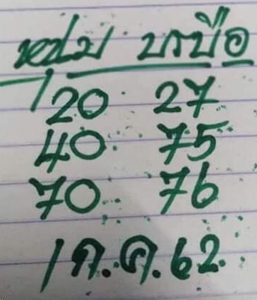 หนุ่ม บาบือ
20 27
40 75
70 76
1 ก.ค.62